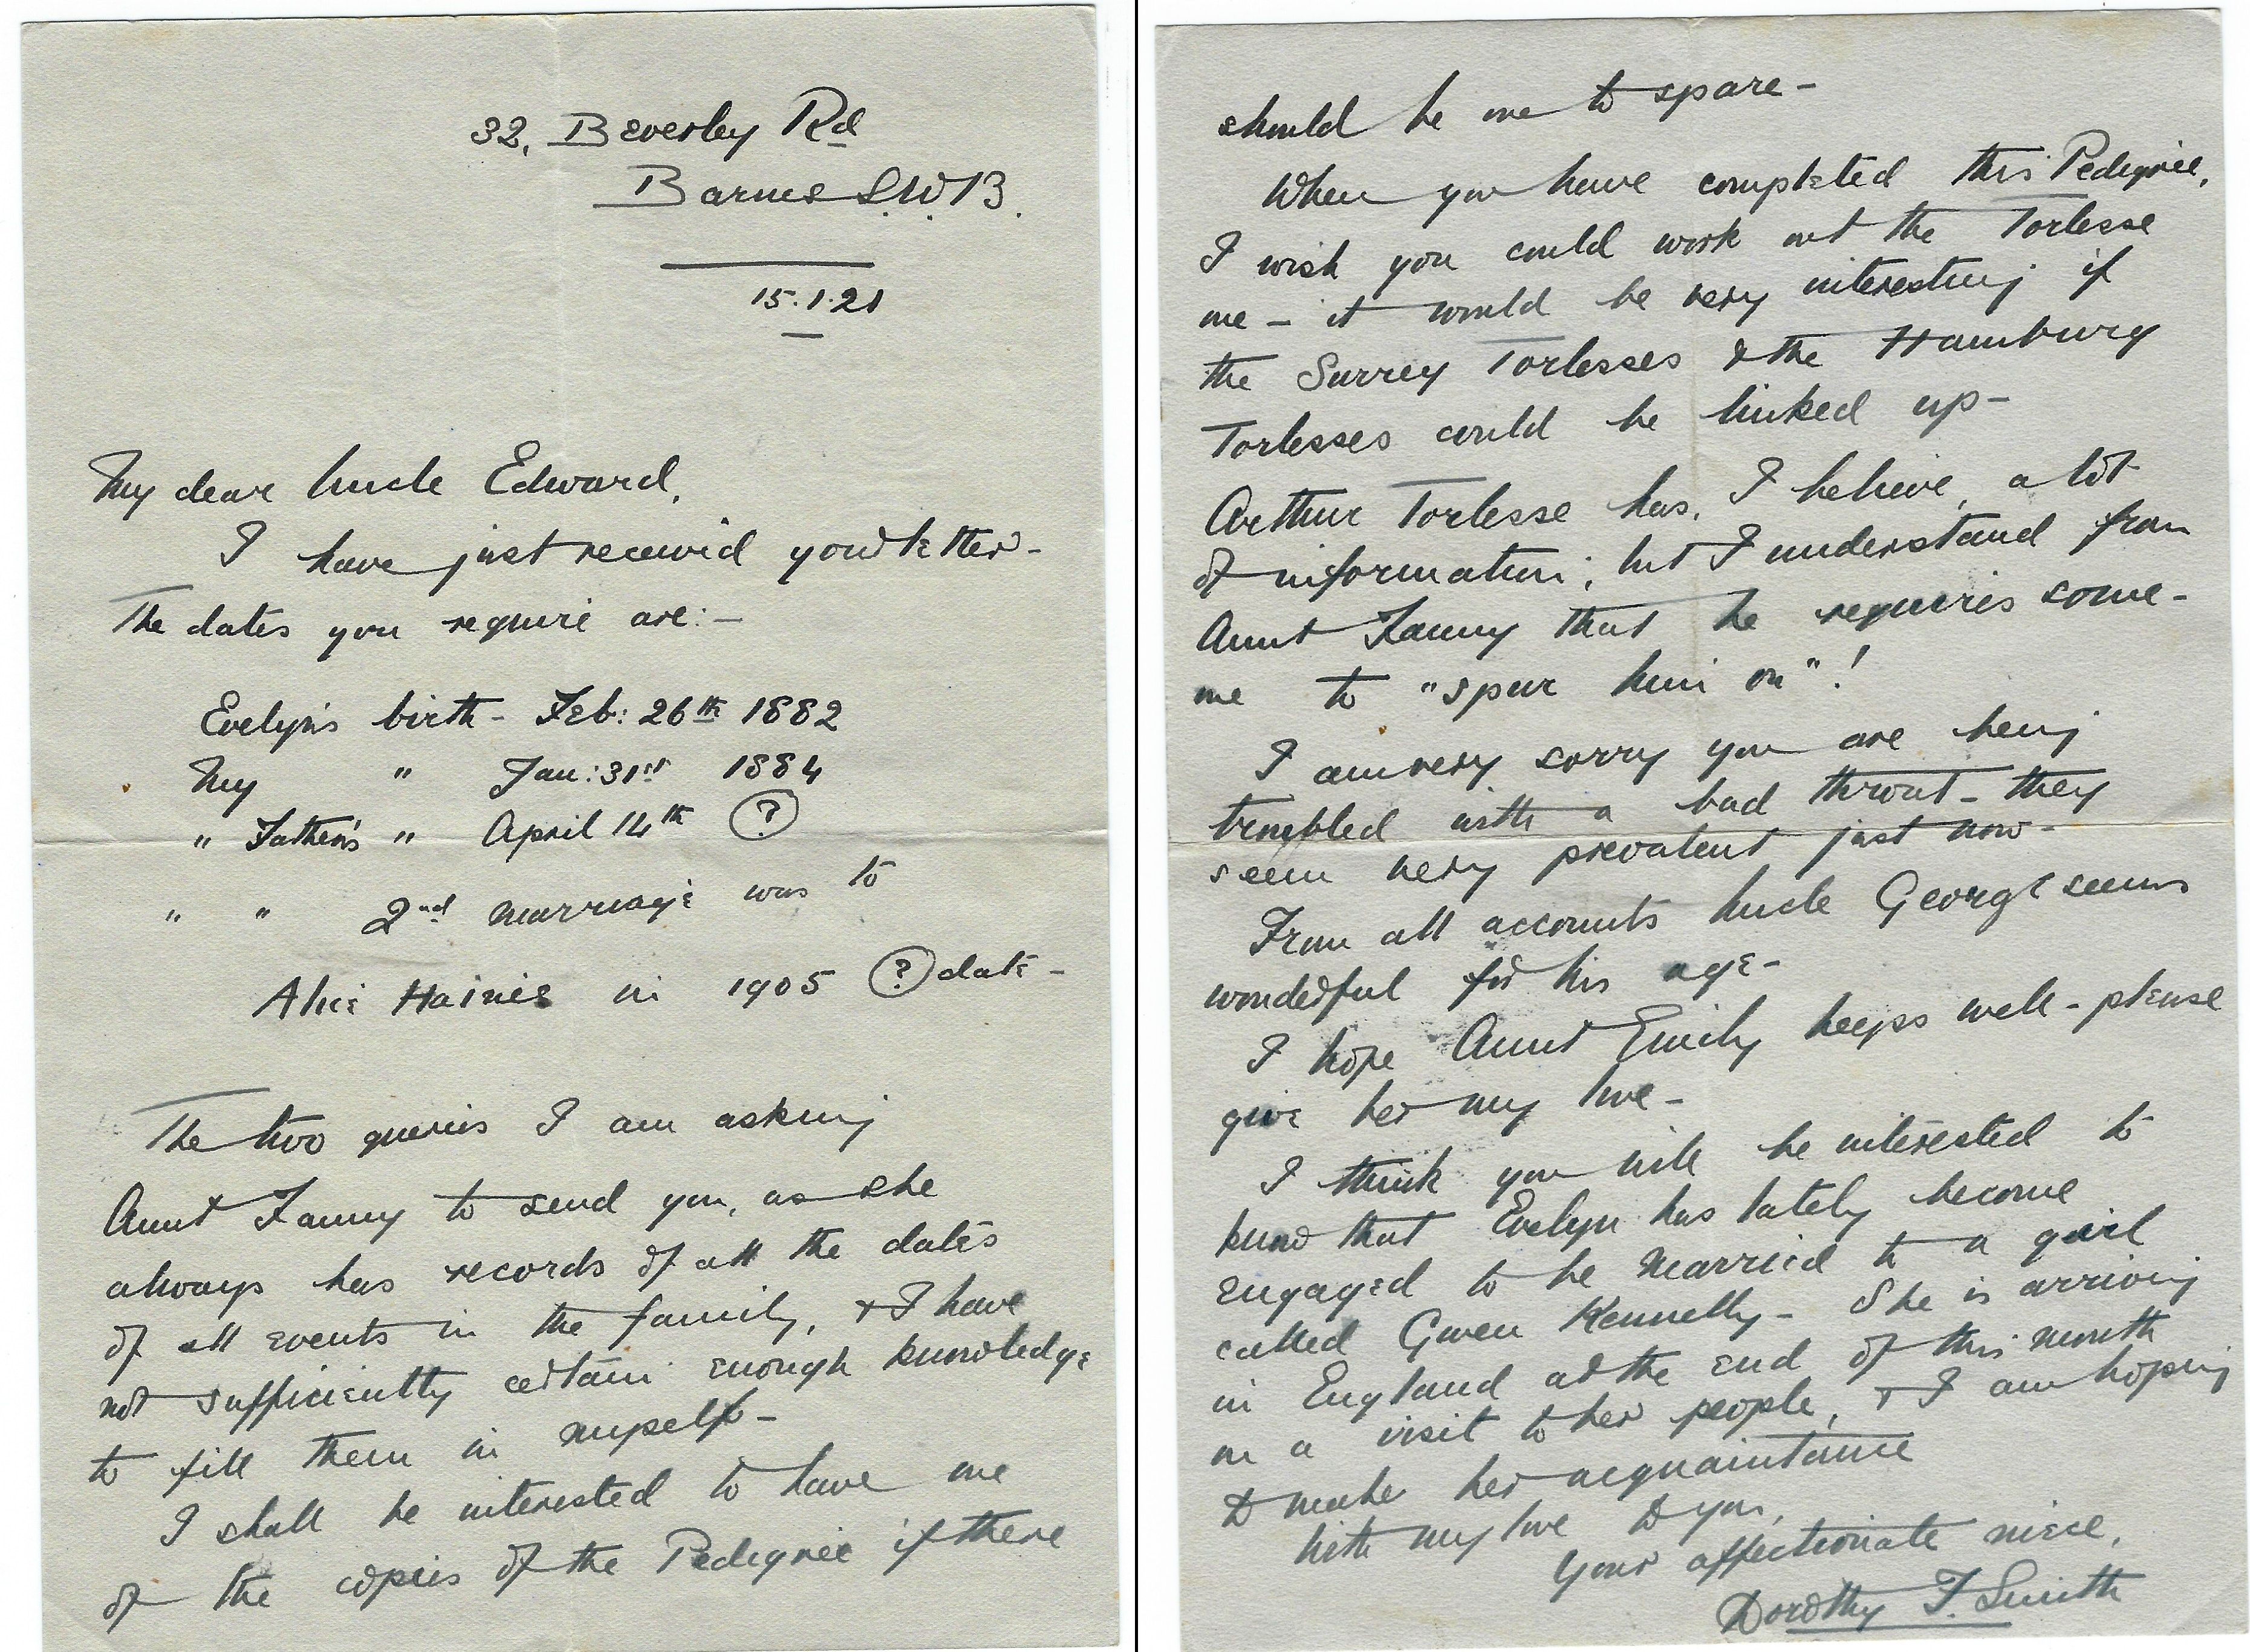 32, Beverley Rd
Barnes S.W.13.
15.1.21
My dear Uncle Edward,
I have just received your letter -
The dates you require are: -
Evelyn's birth - Feb: 26th 1882
My " Jan: 31st 1884
" Father's " April 14th (?)
" " 2nd marriage was to
Alice Haines in 1905 (?) date -
The two queries I am asking
Aunt Fanny to send you, as she
always has records of all the dates
of all events in the family, & I have
not sufficiently certain enough knowledge
to fill them in myself -
I shall be interested to have one
of the copies of the Pedigree if there
should be one to spare -
When you have completed this Pedigree,
I wish you could work out the Torlesse
one - it would be very interesting if
the Surrey Torlesses & the Hamburg
Torlesses could be linked up -
Arthur Torlesse has, I believe, a lot
of information; but I understand from
Aunt Fanny that he requires some-
one to "spur him on"!
I am very sorry you are being
troubled with a bad throat - they
seem very prevalent just now -
From all accounts Uncle George seems
wonderful for his age -
I hope Aunt Emily keeps well - please
give her my love -
I think you will be interested to
know that Evelyn has lately become
engaged to be married to a girl
called Gwen Kennelly - She is arriving
in England at the end of this month
on a visit to her people, & I am hoping
to make her acquaintance
With my love to you,
Your affectionate niece,
Dorothy F. Smith